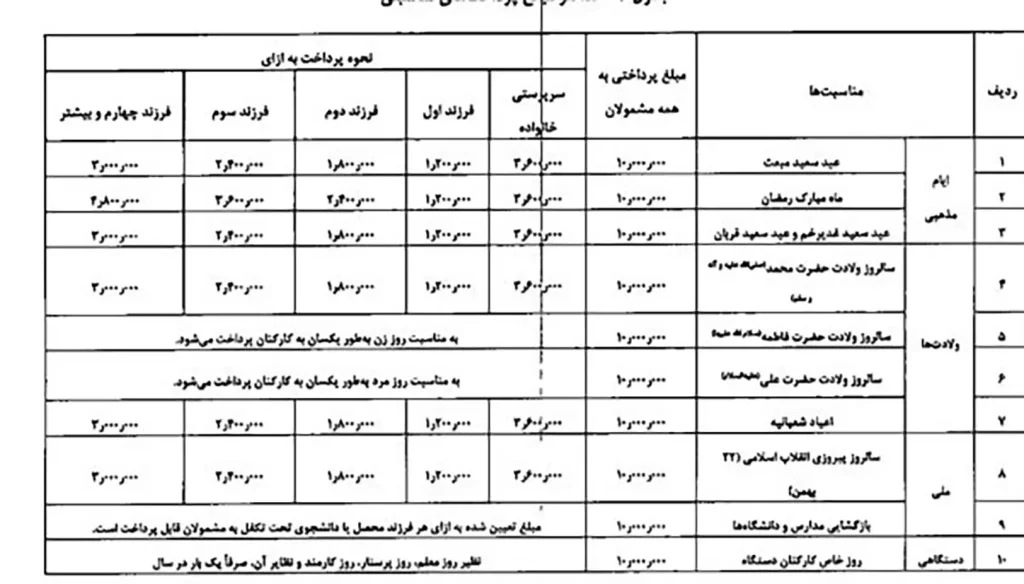 ردیف	مناسبت‌ها	مبلغ پرداختی به همه مشمولان	نحوه پرداخت به ازای
سرپرستی خانواده	فرزند اول	فرزند دوم	فرزند سوم	فرزند چهارم و بیشتر
ایام مذهبی
۱	عید سعید مبعث	۱۰٫۰۰۰٫۰۰۰	۳٫۶۰۰٫۰۰۰	۱٫۲۰۰٫۰۰۰	۱٫۸۰۰٫۰۰۰	۲٫۴۰۰٫۰۰۰	۳٫۰۰۰٫۰۰۰
۲	ماه مبارک رمضان	۱۰٫۰۰۰٫۰۰۰	۳٫۶۰۰٫۰۰۰	۱٫۲۰۰٫۰۰۰	۲٫۴۰۰٫۰۰۰	۳٫۶۰۰٫۰۰۰	۴٫۸۰۰٫۰۰۰
۳	عید سعید غدیرخم و عید سعید قربان	۱۰٫۰۰۰٫۰۰۰	۳٫۶۰۰٫۰۰۰	۱٫۲۰۰٫۰۰۰	۱٫۸۰۰٫۰۰۰	۲٫۴۰۰٫۰۰۰	۳٫۰۰۰٫۰۰۰
ولادت‌ها
۴	سالروز ولادت حضرت محمد (صلی‌الله علیه و آله و سلم)	۱۰٫۰۰۰٫۰۰۰	۳٫۶۰۰٫۰۰۰	۱٫۲۰۰٫۰۰۰	۱٫۸۰۰٫۰۰۰	۲٫۴۰۰٫۰۰۰	۳٫۰۰۰٫۰۰۰
۵	سالروز ولادت حضرت فاطمه (سلام‌الله علیها)	۱۰٫۰۰۰٫۰۰۰	به مناسبت روز زن به‌طور یکسان به کارکنان پرداخت می‌شود.
۶	سالروز ولادت حضرت علی (علیه‌السلام)	۱۰٫۰۰۰٫۰۰۰	به مناسبت روز مرد به‌طور یکسان به کارکنان پرداخت می‌شود.
۷	اعیاد شعبانیه	۱۰٫۰۰۰٫۰۰۰	۳٫۶۰۰٫۰۰۰	۱٫۲۰۰٫۰۰۰	۱٫۸۰۰٫۰۰۰	۲٫۴۰۰٫۰۰۰	۳٫۰۰۰٫۰۰۰
ملی
۸	سالروز پیروزی انقلاب اسلامی (۲۲ بهمن)	۱۰٫۰۰۰٫۰۰۰	۳٫۶۰۰٫۰۰۰	۱٫۲۰۰٫۰۰۰	۱٫۸۰۰٫۰۰۰	۲٫۴۰۰٫۰۰۰	۳٫۰۰۰٫۰۰۰
۹	بازگشایی مدارس و دانشگاه‌ها	۱۰٫۰۰۰٫۰۰۰	مبلغ تعیین شده به ازای هر فرزند محصل یا دانشجوی تحت تکفل به مشمولان قابل پرداخت است.
دستگاهی
۱۰	روز خاص کارکنان دستگاه	۱۰٫۰۰۰٫۰۰۰	نظیر روز معلم، روز پرستار، روز کارمند و نظایر آن، صرفاً یک بار در سال